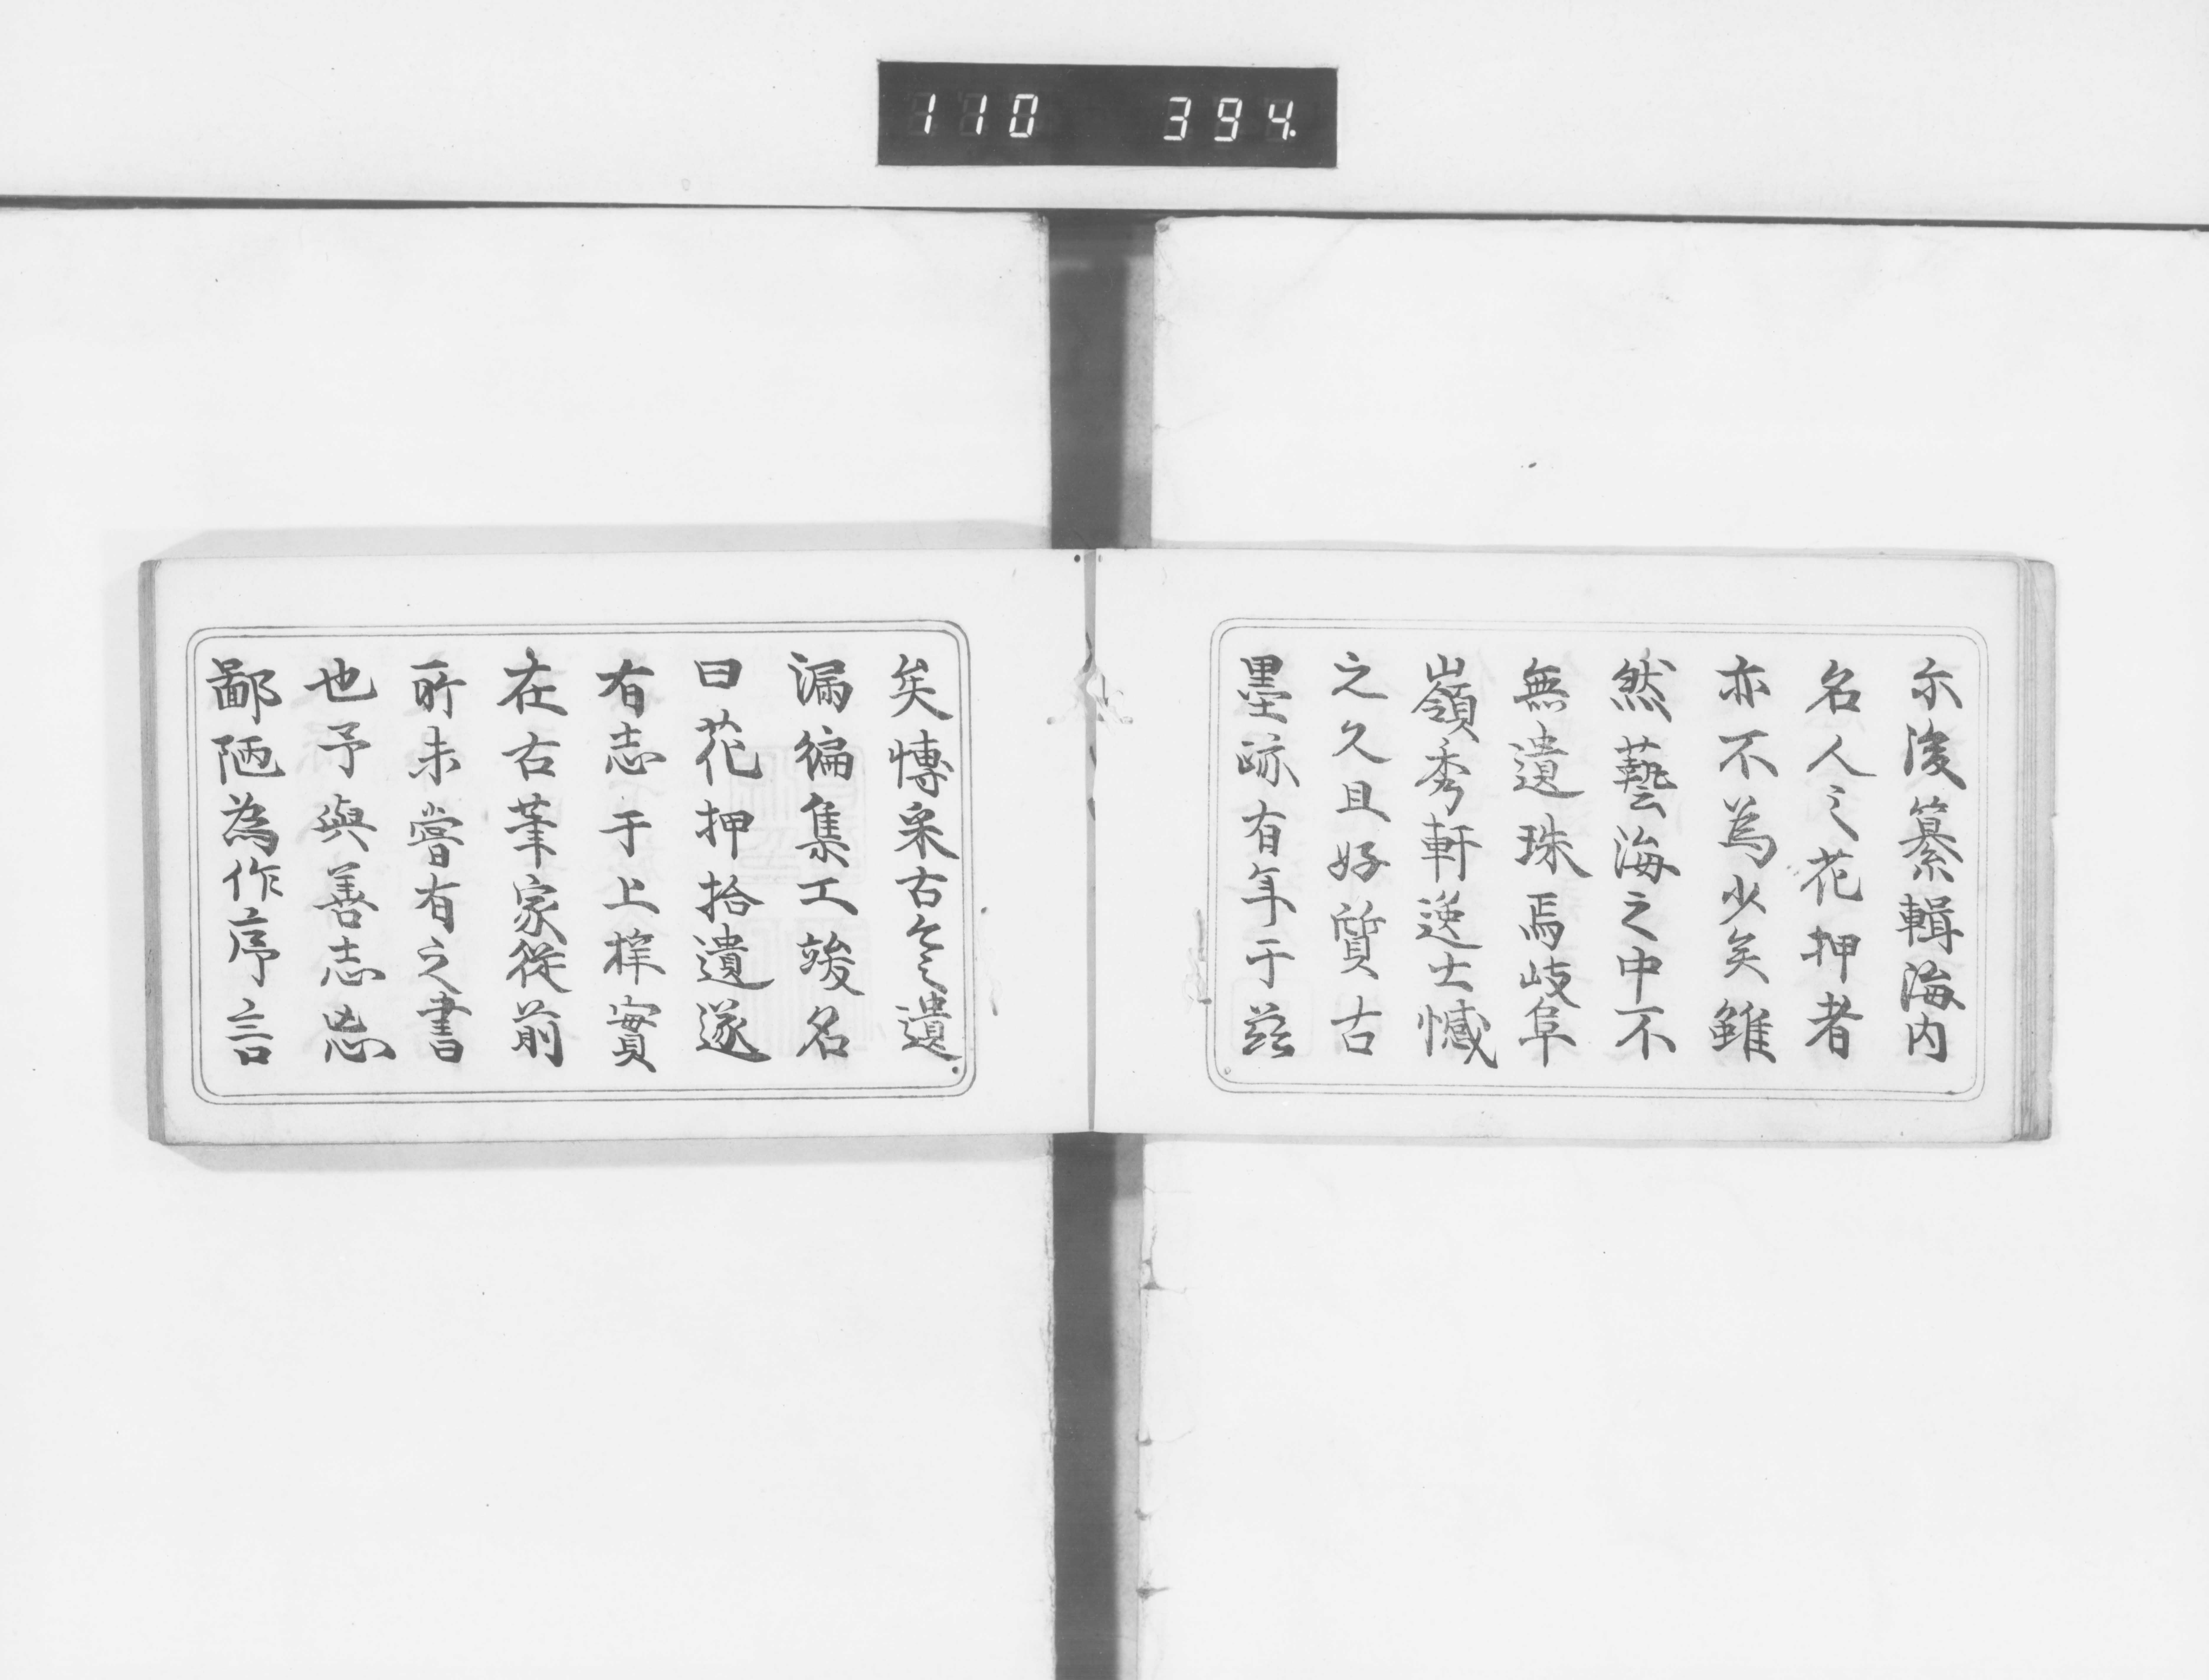 110 394.
尓後纂輯海内
名人之花押者
亦不為少矣雖
然藝海之中不
無遺珠焉岐阜
嶺秀軒逸士憾
之久且好質古
墨跡有年于茲
矣博采古今之遺
漏編集工竣名
曰花押拾遺遂
有志于上梓實
在右筆家從前
所未嘗有之書
也予與善志忘
鄙陋為作序言